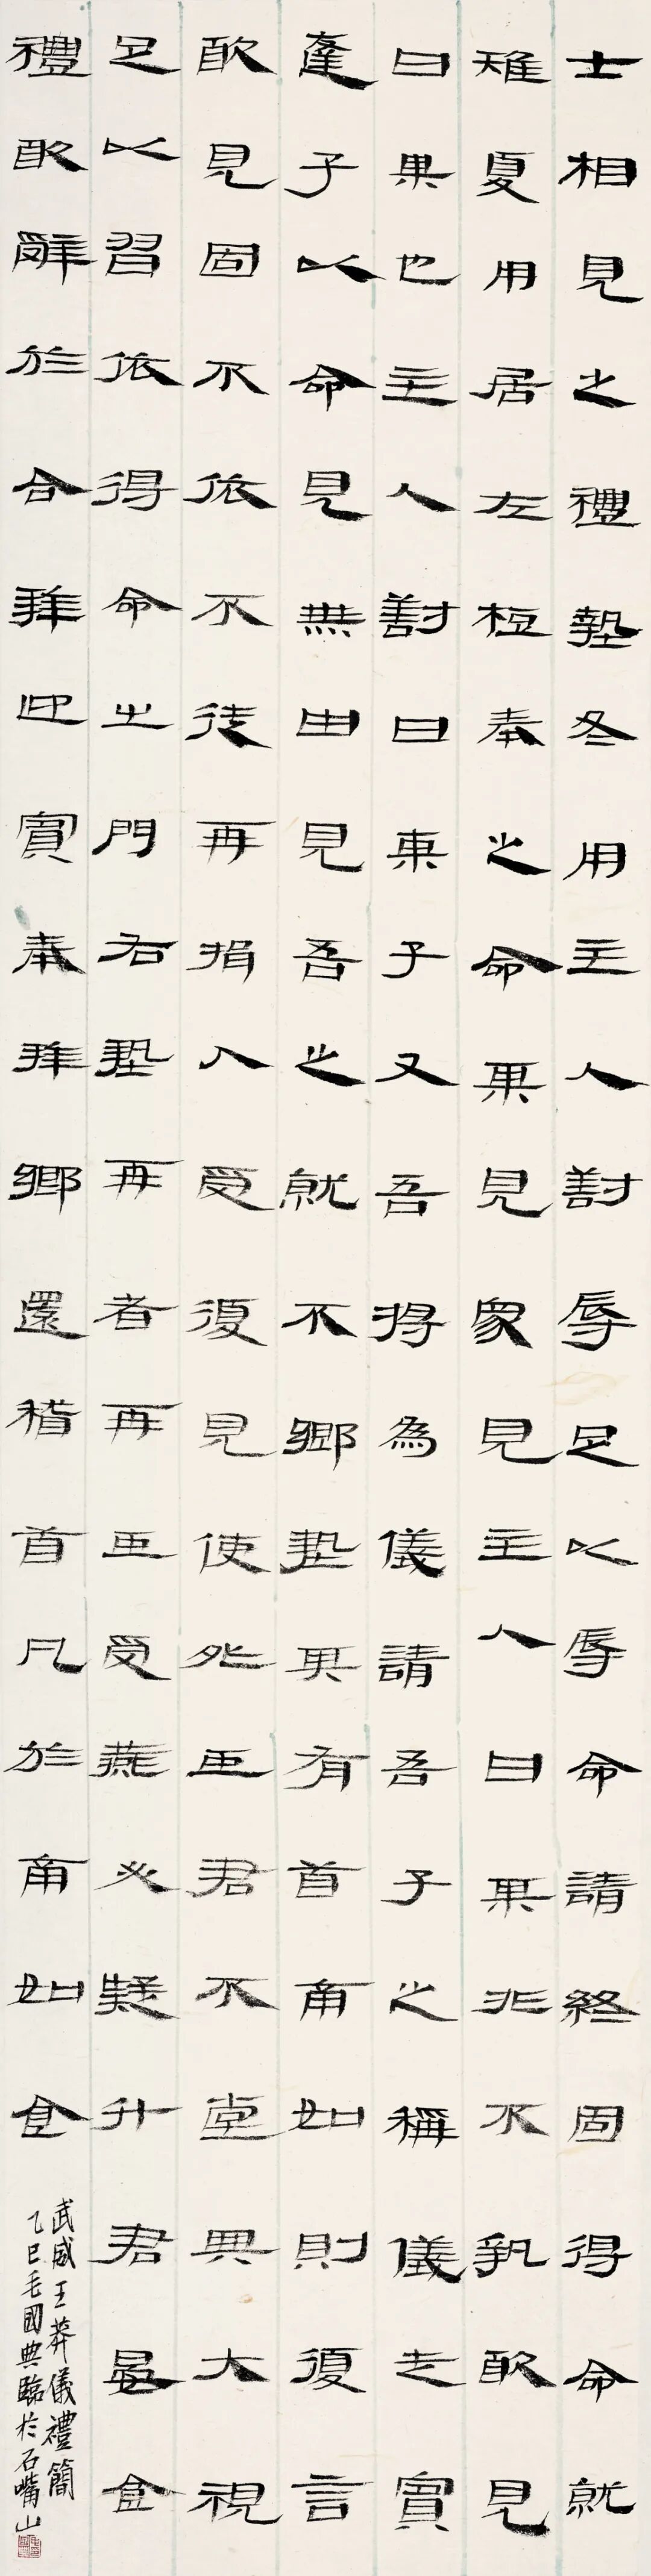 士相見之禮墊冬用主人對辱足以辱命請終固得命就
雉夏用居左桓奉之命果見眾見主人曰果非不執敢見
曰果也主人對曰東子又吾將為儀請吾子之稱儀走賓
蓬子以命見無由見吾之就不鄉墊果有首甭如則復言
敢見固不依不徒再捐入受復見使外亜君不堂與大視
足以習依得命出門右墊再者再亜受燕必疑升君曷食
禮敢辭於合拜迎賓奉拜鄉還稽首凡於甭如食
武威王莽儀禮簡
乙巳毛國典臨於石嘴山